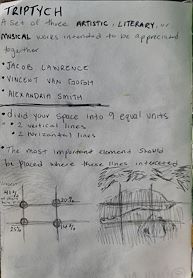 TRIPTYCH
A set of three ARTISTIC, LITERARY, or
MUSICAL works intended to be appreciated
together
• JACOB LAWRENCE
• VINCENT VAN GOUGH
• ALEXANDRIA SMITH
• divid your space into 9 equal units
• 2 vertical lines
• 2 horizontal lines
• The most important element should
be placed where these lines intersect
41%
20%
25%
14%